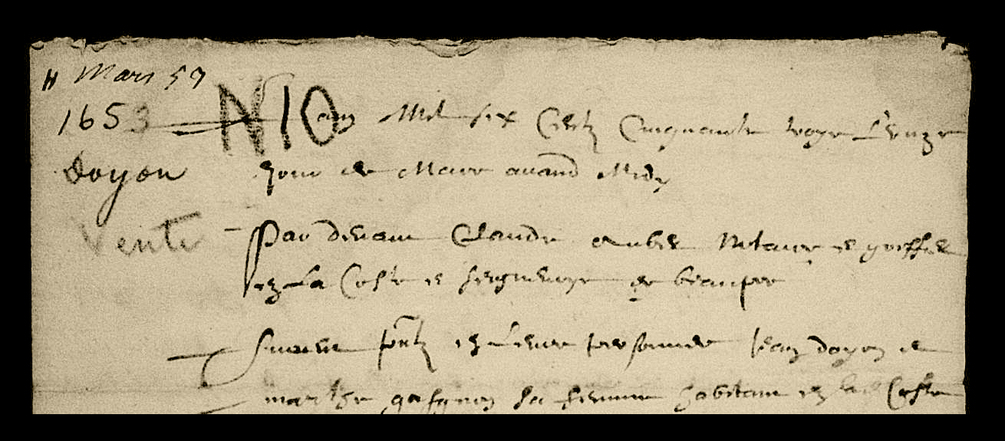 Mars 57
1653
doyon
Vente
N 10
an Mil six Centz Cinquante troys L'unze
Jour de Mars avand Midy
Par devant Claude auber Notaire et greffier
en La Coste et seigneurye de beaupré
furent en Leurs personnes Jean doyon et
marthe gasgnon sa femme habitans en la Coste